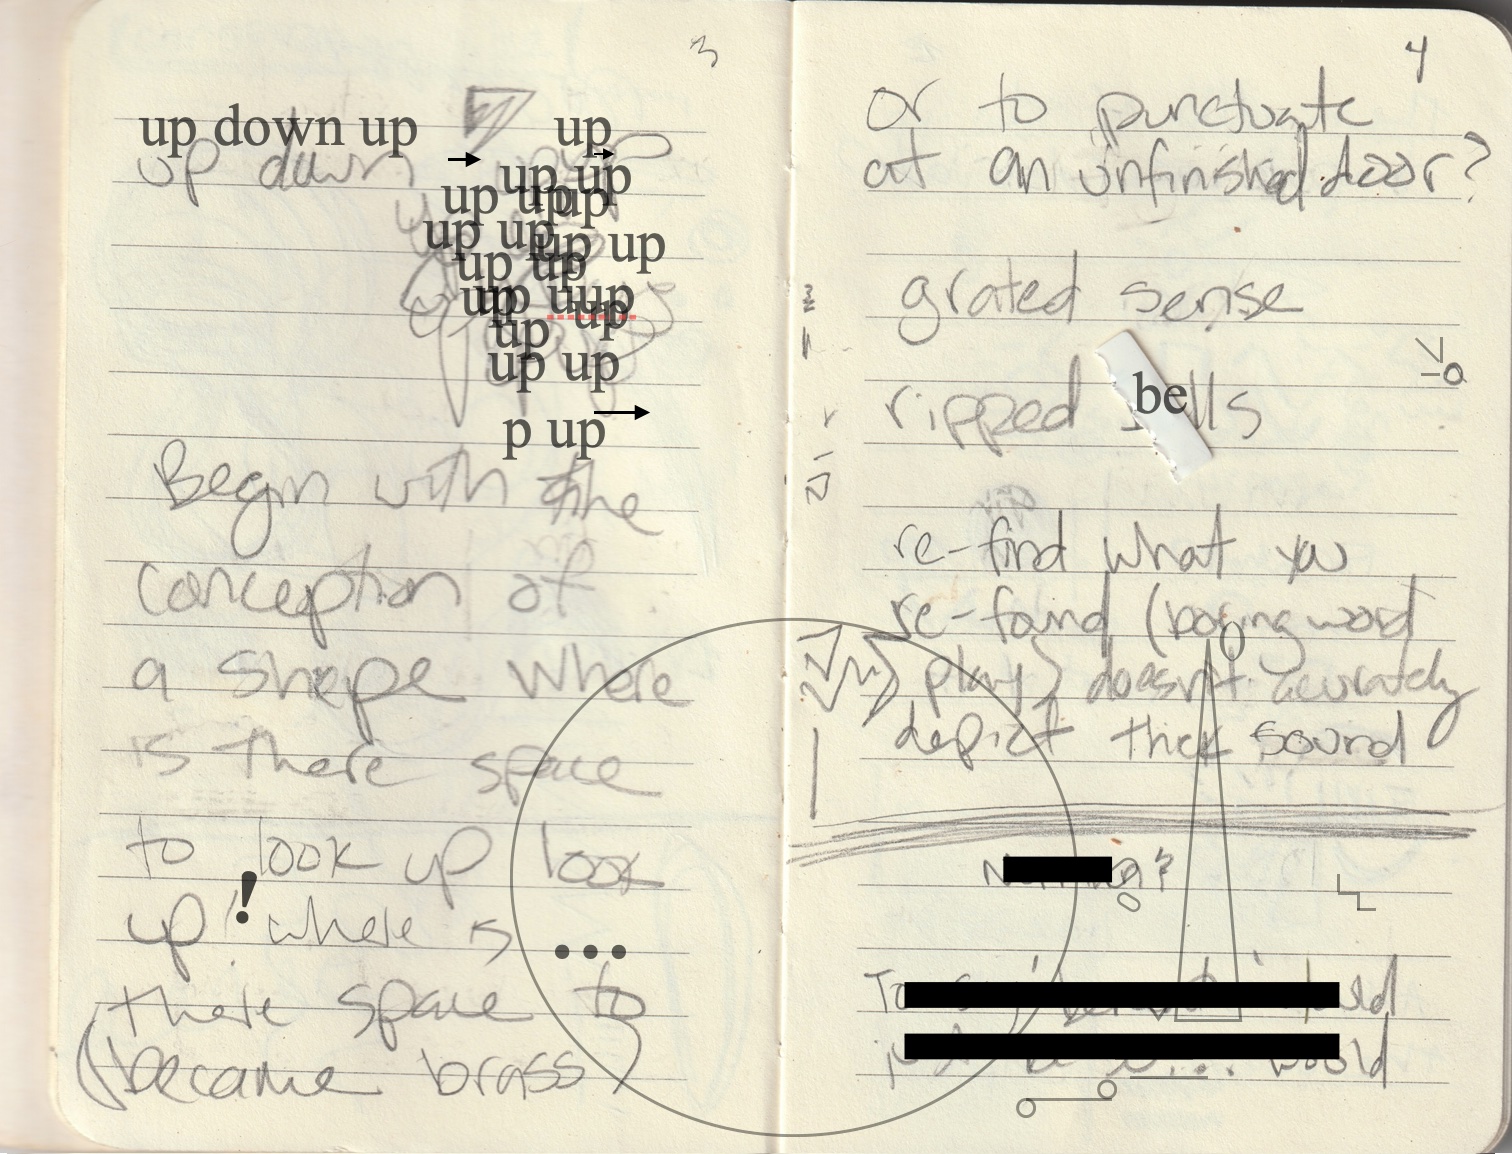 3
up down up up
up down
up up
up up up
up up up up
up up
up up up
up up
up up
p up
Begin with the
conception of
a shape where
is there space
to look up look
up! where is ...
there space to
(became brass)
4
or to punctuate
at an unfinished door?
grated sense
ripped bells
re-find what you
re-found (boring word
play) doesn't acurately
depict thick sound
To
would